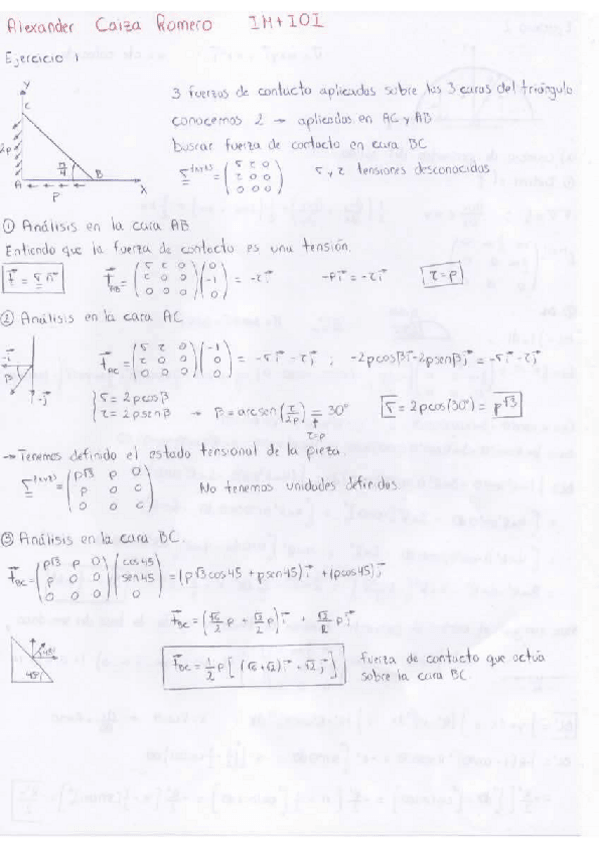 Alexander Caiza Romero IM+IOI
Ejercicio 1
3 fuerzas de contacto aplicadas sobre las 3 caras del triángulo
conocemos 2 → aplicadas en AC y AB
buscar fuerza de contacto en cara BC
σ^(xyz) = (σ τ 0; τ 0 0; 0 0 0) σ y τ tensiones desconocidas
y
C
2p
π/4
A
B
x
p
① Análisis en la cara AB
Entiendo que la fuerza de contacto es una tensión.
f = σ n f_AB = (σ τ 0; τ 0 0; 0 0 0)(0; -1; 0) = -τi -pi = -τi τ=p
② Análisis en la cara AC
-i
β
-j
f_AC = (σ τ 0; τ 0 0; 0 0 0)(-1; 0; 0) = -σi - τj ; -2pcosβi - 2psenβj = -σi - τj
{σ = 2pcosβ
τ = 2psenβ → β = arcsen(τ/2p) = 30° σ = 2pcos(30°) = p√3
τ=p
→ Tenemos definido el estado tensional de la pieza.
σ^(xyz) = (p√3 p 0; p 0 0; 0 0 0) No tenemos unidades definidas.
③ Análisis en la cara BC.
f_BC = (p√3 p 0; p 0 0; 0 0 0)(cos45; sen45; 0) = (p√3cos45 + psen45)i + (pcos45)j
f_BC = (√6/2 p + √2/2 p)i + √2/2 pj
45°
45°
f_BC = 1/2 p[(√6+√2)i + √2j] fuerza de contacto que actúa
sobre la cara BC.